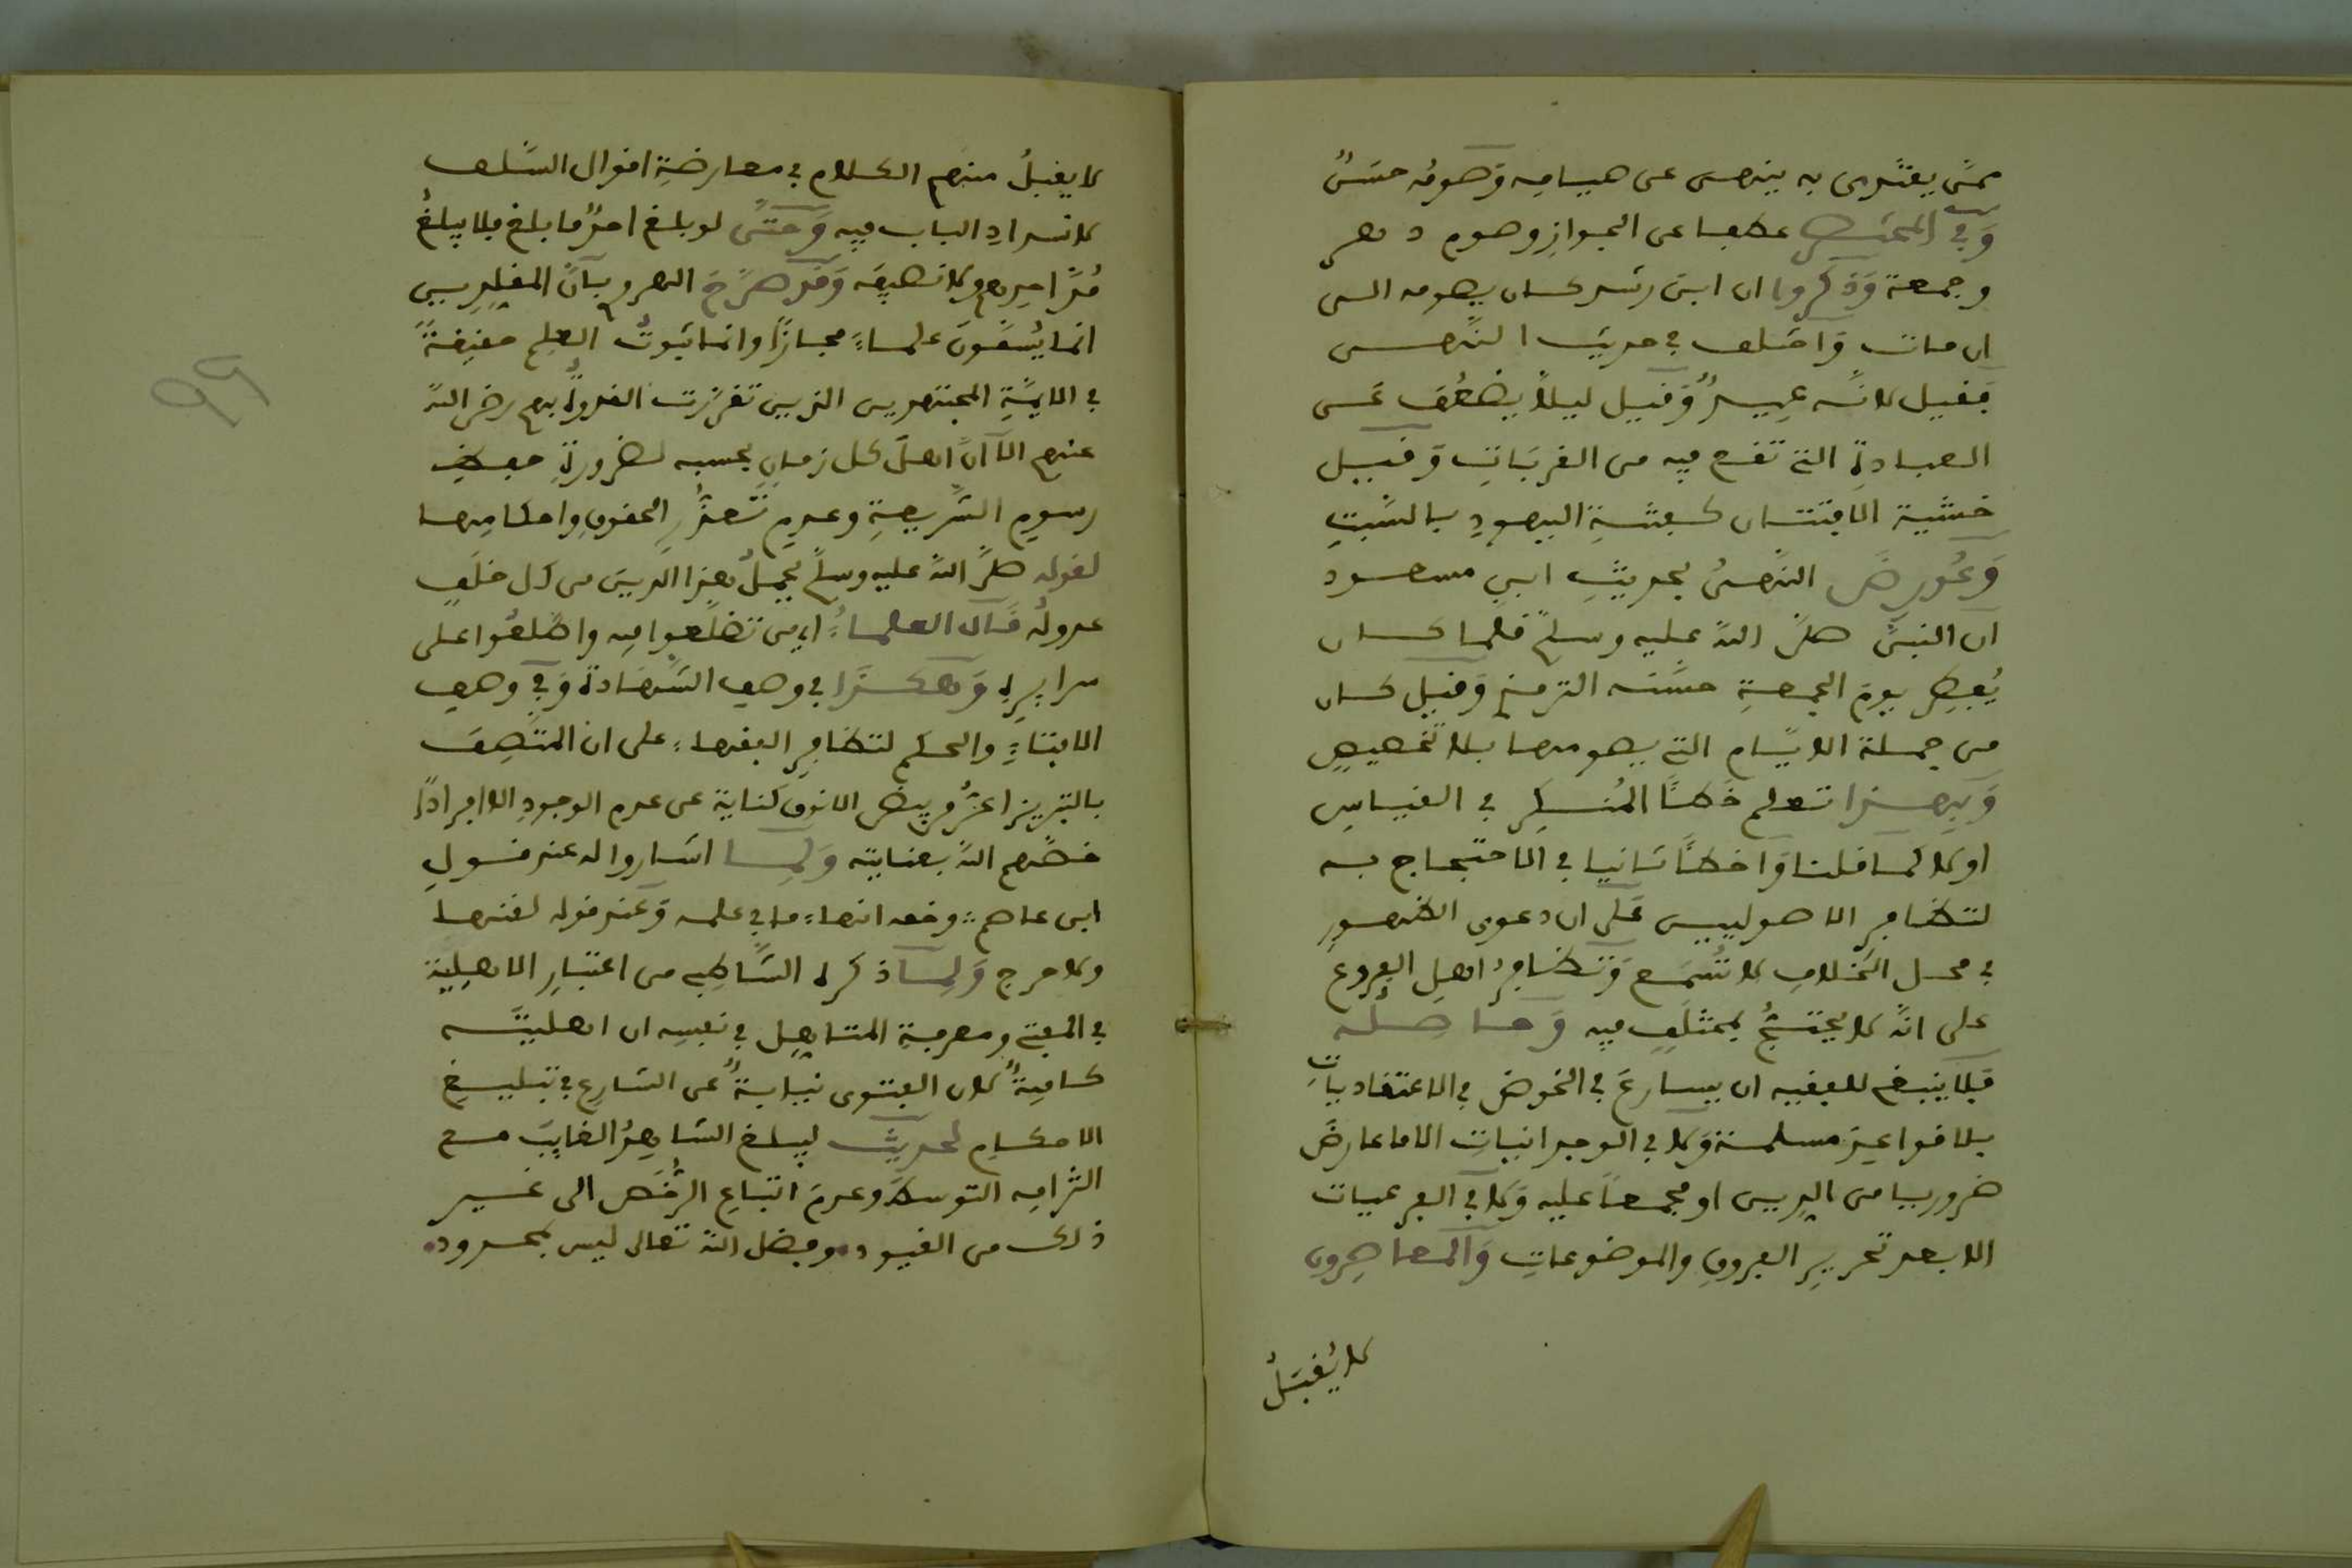 ممن يقتدى به ينهى عن صيامه وصومه حسن
وفي المختصر عطفا على الجواز وصوم دهر
وجمعة وذكروا ان ابن رشد كان يصومه الى
ان مات واختلف في حديث النهي
فقيل لانه عيد وقيل ليلا يضعف عن
العبادة التي تقع فيه من القربات وقيل
خشية الافتتان كفتنة اليهود بالسبت
وعورض النهي بحديث ابن مسعود
ان النبي صلى الله عليه وسلم قلما كان
يفطر يوم الجمعة حسنه الترمذي وقيل كان
من جملة الايام التي يصومها بلا تخصيص
وبهذا تعلم خطأ المنكر في القياس
اولا كما قلنا واخطأ ثانيا في الاحتجاج به
لتظافر الاصوليين على ان دعوى الظهور
في محل الخلاف لا تسمع وتظافر اهل الفروع
على انه لا يحتج بمختلف فيه وحاصله
فلا ينبغي للفقيه ان يسارع في الخوض في الاعتقاديات
بلا قواعد مسلمة ولا في الوجدانيات الا ما عارض
ضروريا من الدين او مجمعا عليه ولا في الفرعيات
الا بعد تحرير الفروق والموضوعات والمعاصرون
لا يقبل
لا يقبل منهم الكلام في معارضة اقوال السلف
لانسداد الباب فيه وحتى لو بلغ احد ما بلغ فلا يبلغ
مد احدهم ولا نصيفه وقد صرح بان المقلدين
انما يسمون علماء مجازا وانما ثبوت العلم حقيقة
في الايمة المجتهدين الذين تقررت القدوة بهم رضي الله
عنهم الا ان اهل كل زمان بحسبه لضرورة حفظ
رسوم الشريعة وعدم تعذر الحقوق واحكامها
لقوله صلى الله عليه وسلم يحمل هذا الدين من كل خلف
عدوله قال العلماء اي من تضلعوا فيه واطلعوا على
سرايره وهكذا في وصف الشهادة وفي وصف
الافتاء والحكم لتظافر الفقهاء على ان المتصف
بالتبريز اعز من بيض الانوق كناية عن عدم الوجود الا افرادا
خصهم الله بعنايته ولما اشاروا له عند قول
ابن عاصم وخصه انها ما في علمه وعند قوله لفقها
ولا حرج ولما ذكره الشاطبي من اعتبار الاهلية
في المفتي ومعرفة المتاهل في نفسه ان اهليته
كافية لان الفتوى نيابة عن الشارع في تبليغ
الاحكام لحديث ليبلغ الشاهد الغايب مع
التزامه التوسط وعدم اتباع الرخص الى غير
ذلك من القيود وفضل الله تعالى ليس بمحدود
99